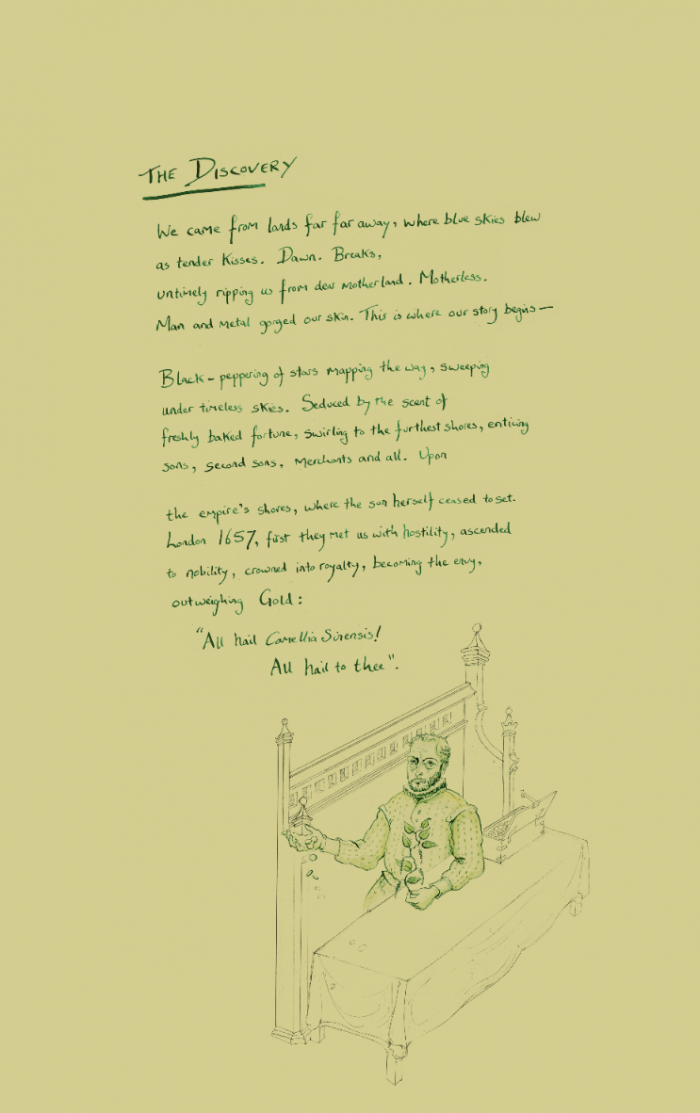 THE DISCOVERY
We came from lands far far away, where blue skies blew
as tender kisses. Dawn. Breaks,
untimely ripping us from dear motherland. Motherless.
Man and metal gorged our skin. This is where our story begins—
Black-peppering of stars mapping the way, sweeping
under timeless skies. Seduced by the scent of
freshly baked fortune, swirling to the furthest shores, enticing
sons, second sons, merchants and all. Upon
the empire's shores, where the sun herself ceased to set.
London 1657, first they met us with hostility, ascended
to nobility, crowned into royalty, becoming the envy,
outweighing Gold:
"All hail Camellia Sinensis!
All hail to thee".